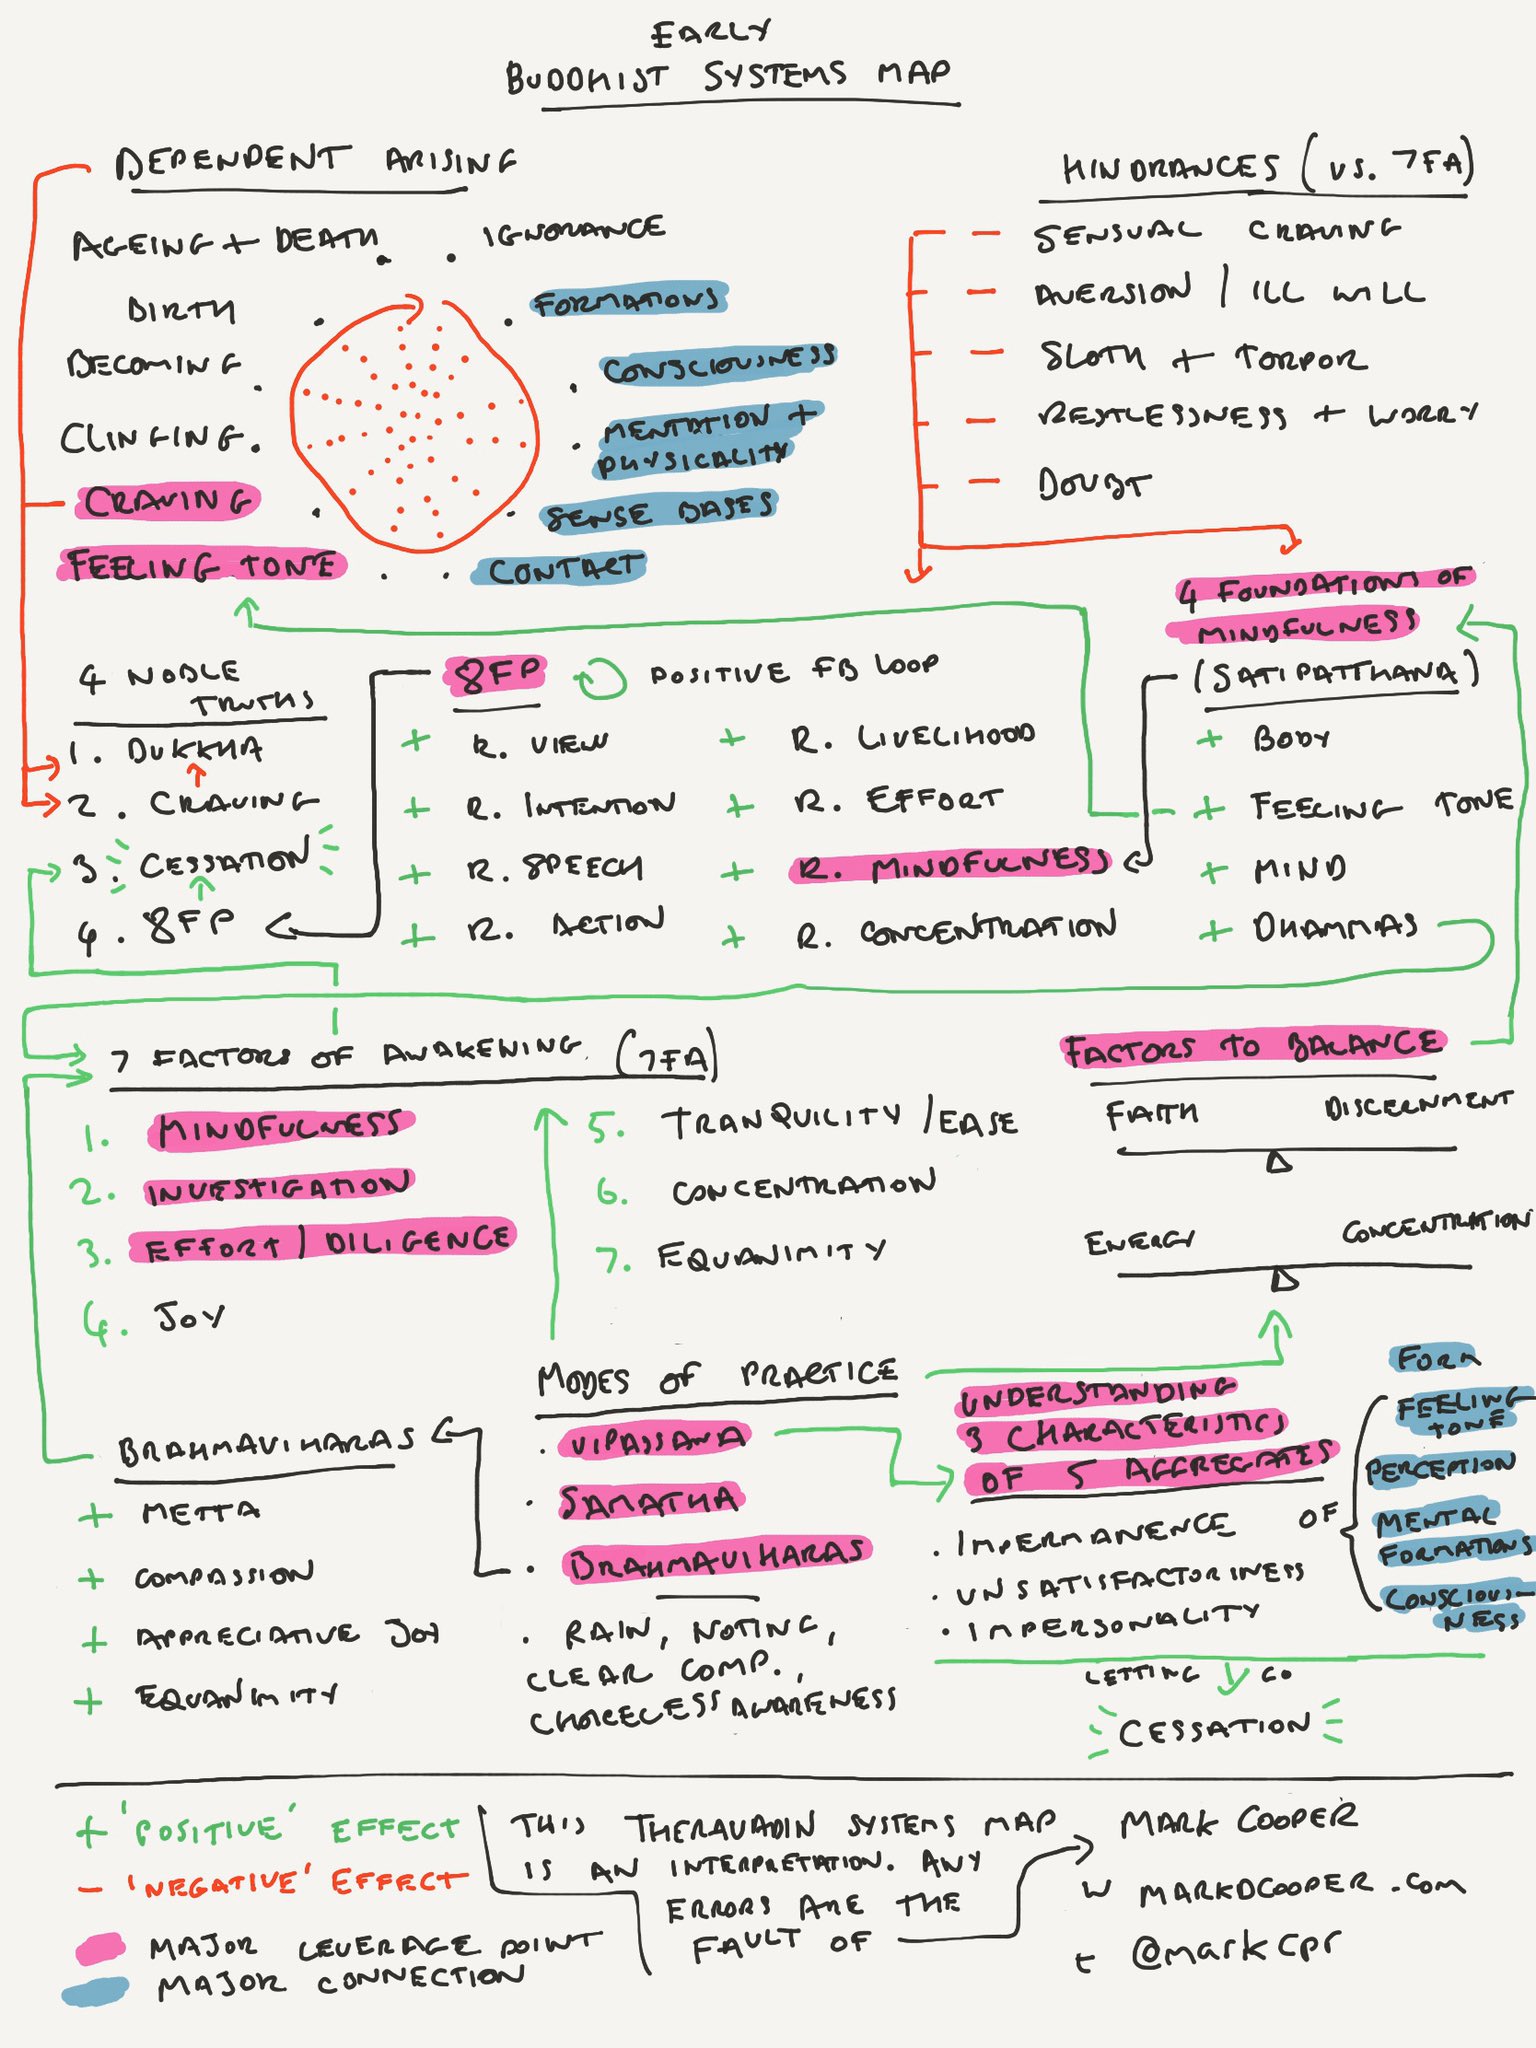 EARLY
BUDDHIST SYSTEMS MAP
DEPENDENT ARISING
AGEING + DEATH
IGNORANCE
BIRTH
FORMATIONS
BECOMING
CONSCIOUSNESS
CLINGING
MENTATION +
PHYSICALITY
CRAVING
SENSE BASES
FEELING TONE
CONTACT
HINDRANCES (VS. 7FA)
- SENSUAL CRAVING
- AVERSION / ILL WILL
- SLOTH + TORPOR
- RESTLESSNESS + WORRY
- DOUBT
4 FOUNDATIONS OF
MINDFULNESS
(SATIPATTHANA)
+ BODY
+ FEELING TONE
+ MIND
+ DHAMMAS
4 NOBLE
TRUTHS
1. DUKKHA
2. CRAVING
3. CESSATION
4. 8FP
8FP POSITIVE FB LOOP
+ R. VIEW
+ R. INTENTION
+ R. SPEECH
+ R. ACTION
+ R. LIVELIHOOD
+ R. EFFORT
+ R. MINDFULNESS
+ R. CONCENTRATION
7 FACTORS OF AWAKENING (7FA)
1. MINDFULNESS
2. INVESTIGATION
3. EFFORT / DILIGENCE
4. JOY
5. TRANQUILITY / EASE
6. CONCENTRATION
7. EQUANIMITY
FACTORS TO BALANCE
FAITH DISCERNMENT
ENERGY CONCENTRATION
BRAHMAVIHARAS
+ METTA
+ COMPASSION
+ APPRECIATIVE JOY
+ EQUANIMITY
MODES OF PRACTICE
. VIPASSANA
. SAMATHA
. BRAHMAVIHARAS
. RAIN, NOTING,
CLEAR COMP.,
CHOICELESS AWARENESS
UNDERSTANDING
3 CHARACTERISTICS
OF 5 AGGREGATES
. IMPERMANENCE
. UNSATISFACTORINESS
. IMPERSONALITY
OF
FORM
FEELING
TONE
PERCEPTION
MENTAL
FORMATIONS
CONSCIOUS-
NESS
LETTING GO
CESSATION
+ 'POSITIVE' EFFECT
- 'NEGATIVE' EFFECT
MAJOR LEVERAGE POINT
MAJOR CONNECTION
THIS THERAVADIN SYSTEMS MAP
IS AN INTERPRETATION. ANY
ERRORS ARE THE
FAULT OF
MARK COOPER
W MARKDCOOPER.COM
t @markcpr